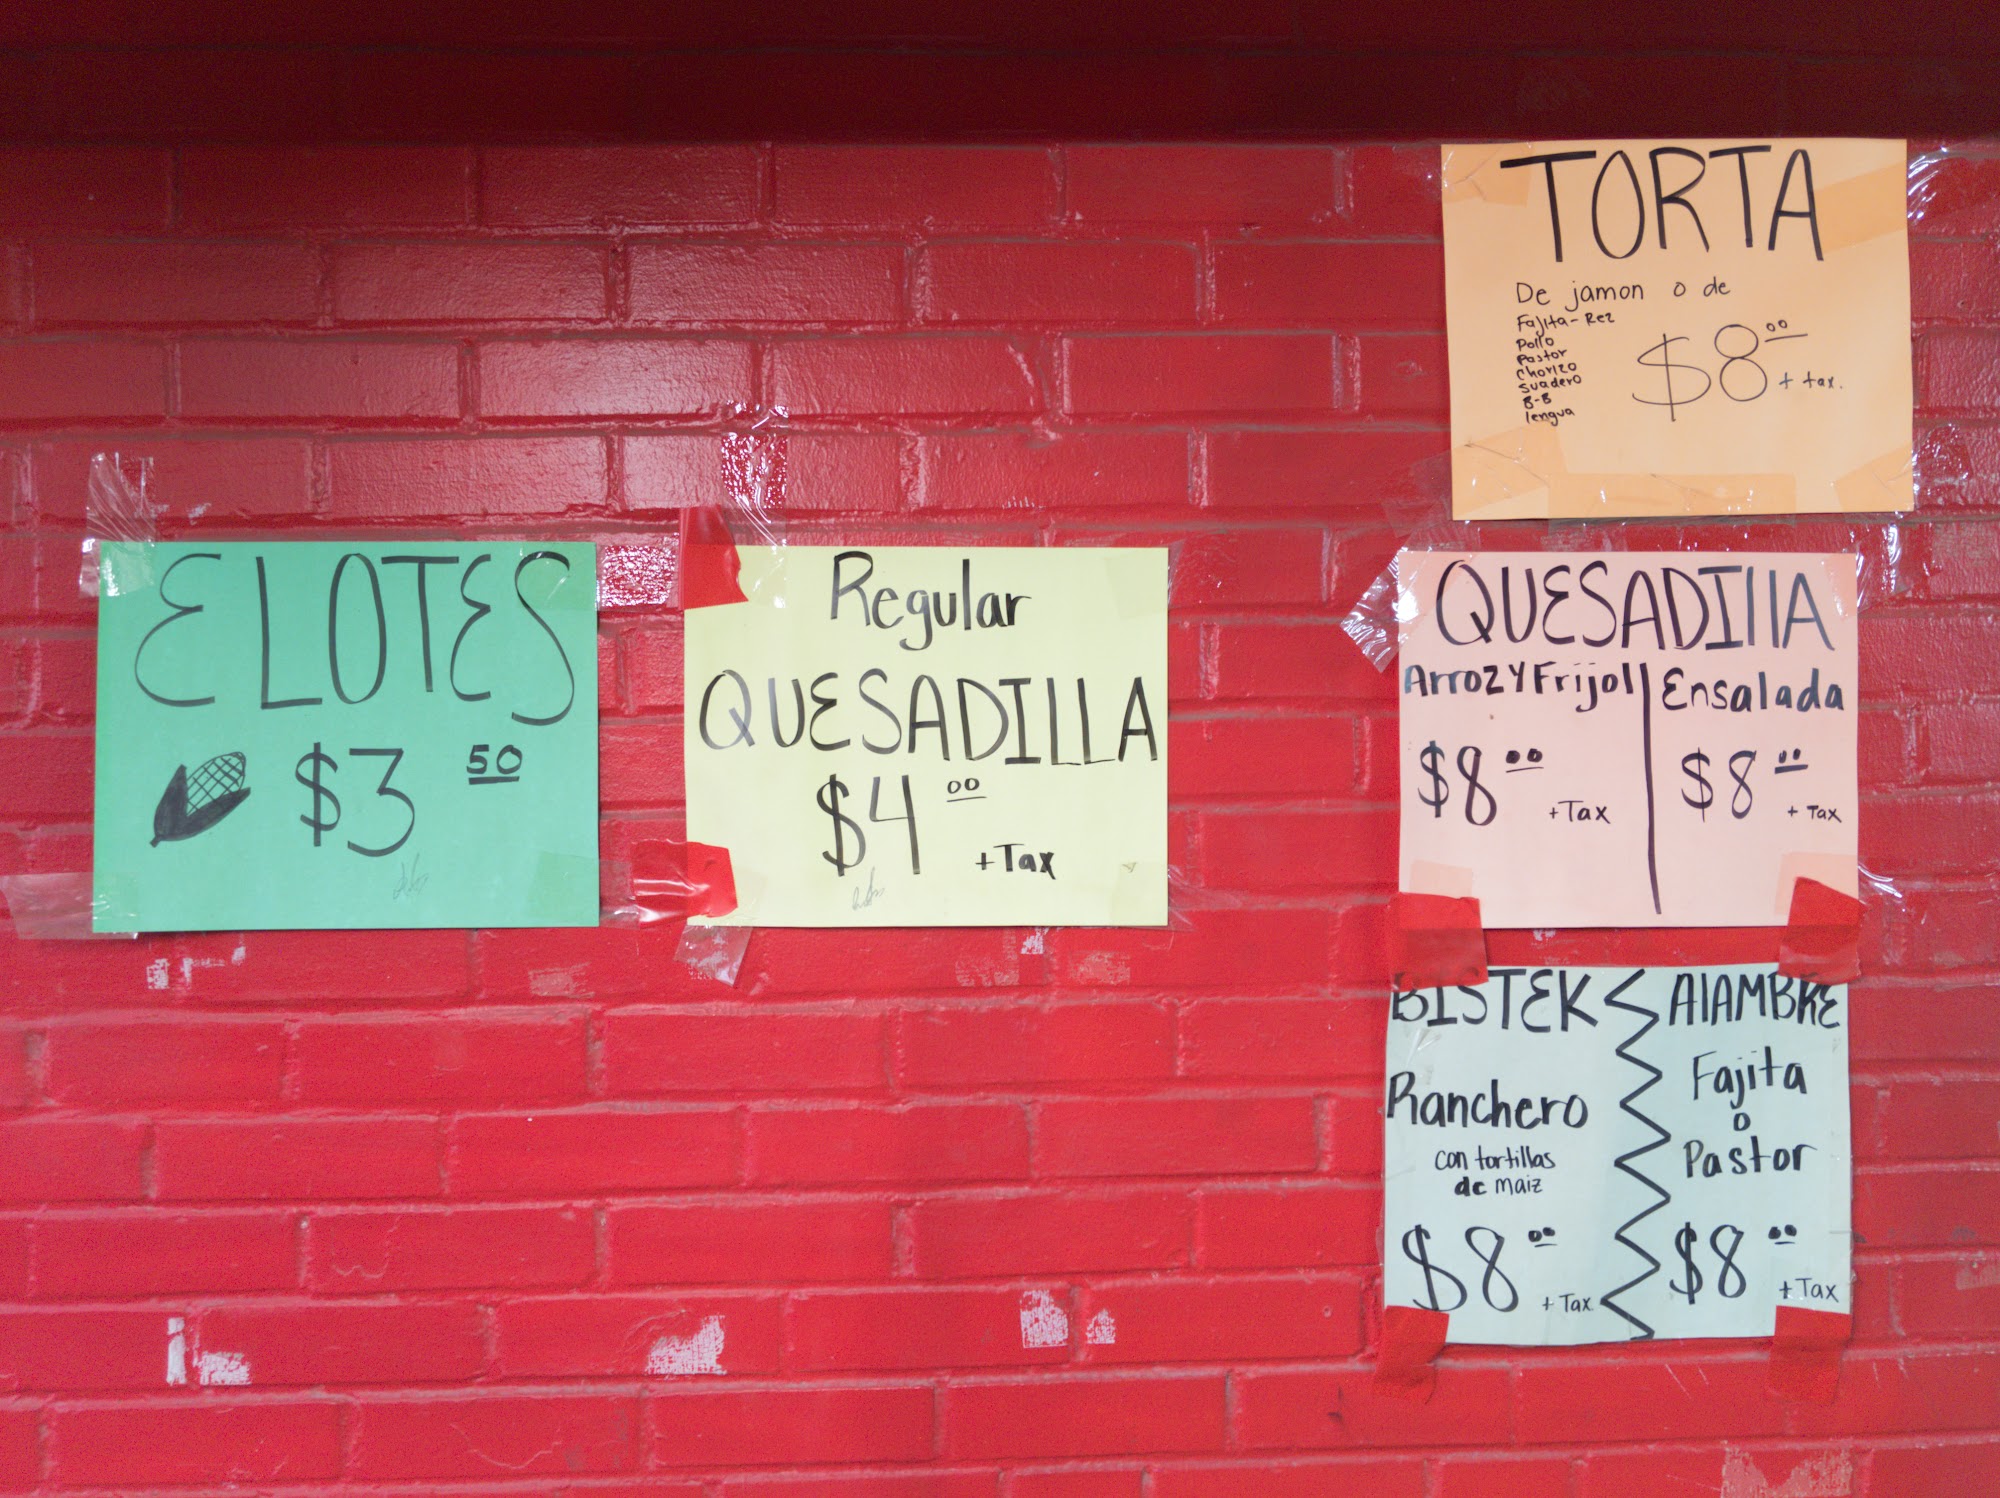 ELOTES
$3 50
Regular
QUESADILLA
$4 00
+ Tax
TORTA
De jamon o de
Fajita-Rez
Pollo
Pastor
Chorizo
Suadero
B-B
lengua
$8 00
+ tax.
QUESADIllA
Arroz Y Frijol
$8 00
+ Tax
Ensalada
$8 00
+ Tax
BISTEK
Ranchero
con tortillas
de maiz
$8 00
+ Tax
AlAMBRE
Fajita
o
Pastor
$8 00
+ Tax